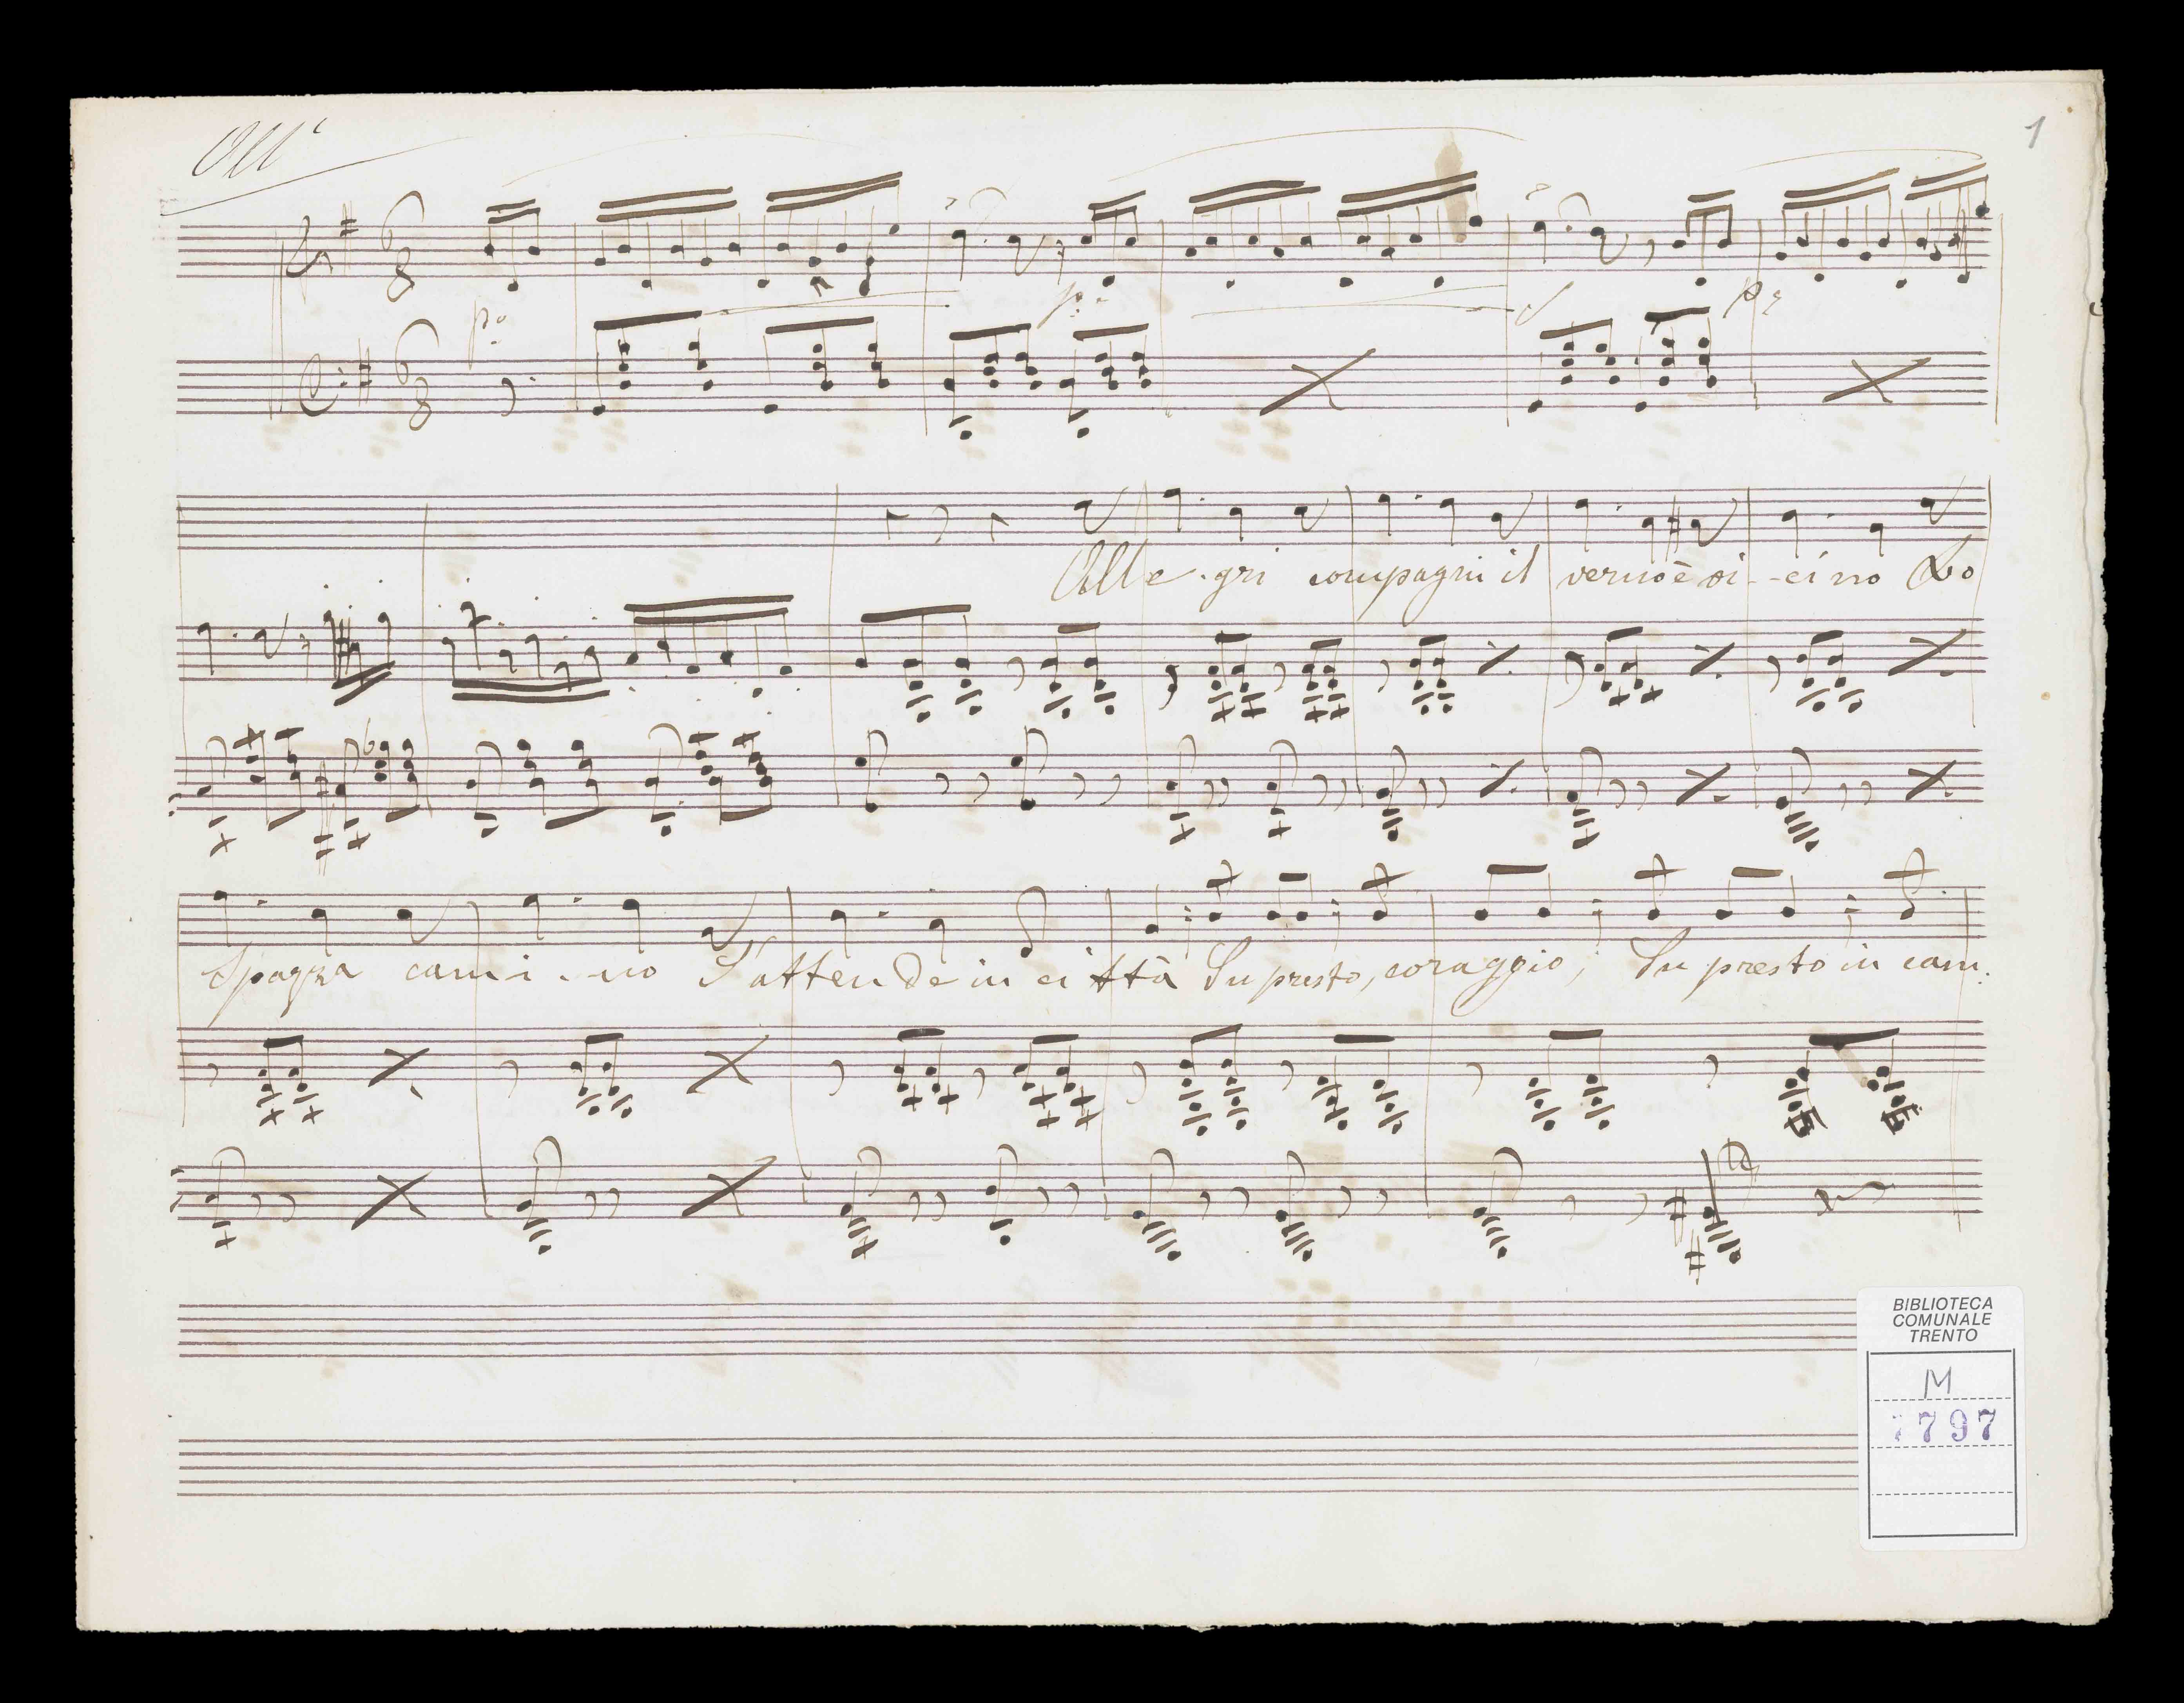 All°
1
6
8
po
p.
f
po
6
8
Alle-gri compagni il verno è vi--cino Lo
Spazza cami--no S'attende in città Su presto, coraggio, Su presto in cam:
BIBLIOTECA
COMUNALE
TRENTO
M
7797